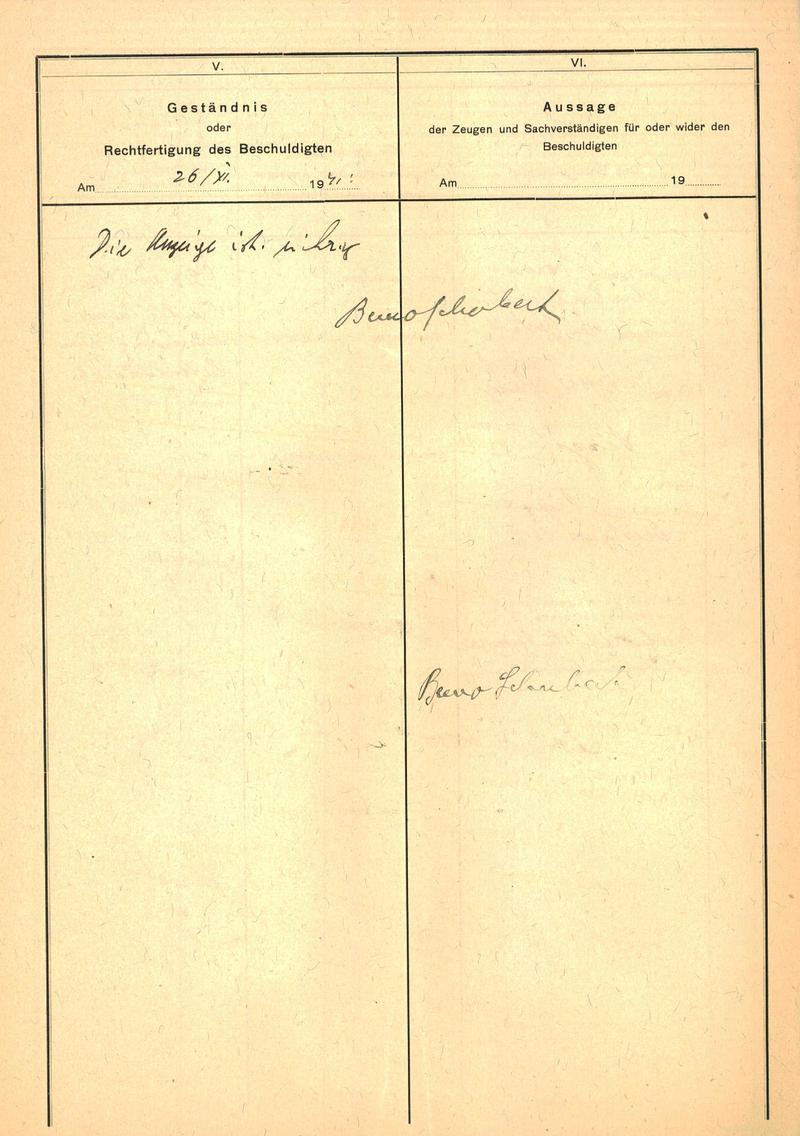 V.
Geständnis
oder
Rechtfertigung des Beschuldigten
Am 26/XI. 1941
Die Anzeige ist richtig
VI.
Aussage
der Zeugen und Sachverständigen für oder wider den
Beschuldigten
Am 19
Benno Schubert
Benno